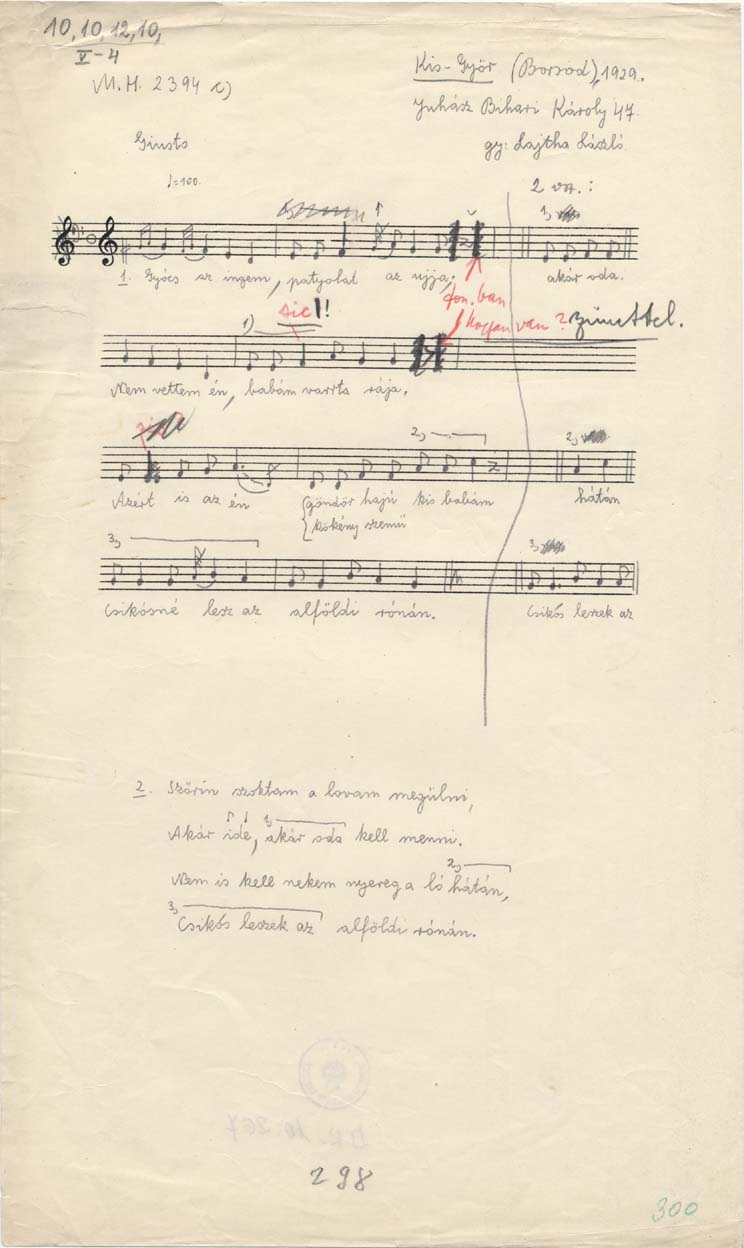 10, 10, 12, 10,
V-4
M.H. 2394 c)
Kis-Győr (Borsod), 1929.
Juhász Bihari Károly 47
gy: Lajtha László
Giusto
♩=100.
2 vsz.:
1)
1. Gyócs az ingem, patyolat az ujja;
akár oda.
fon. ban
hogyan van? szünettel.
sic!!
1)
Nem vettem én, babám varrta rája.
2)
2)
Azért is az én göndör hajú kis babám
hátán
kökény szemű
3)
3)
Csikósné lesz az alföldi rónán.
Csikós leszek az
2. Szőrin szoktam a lovam megülni,
1)
Akár ide, akár oda kell menni.
2)
Nem is kell nekem nyereg a ló hátán,
3)
Csikós leszek az alföldi rónán.
298
300